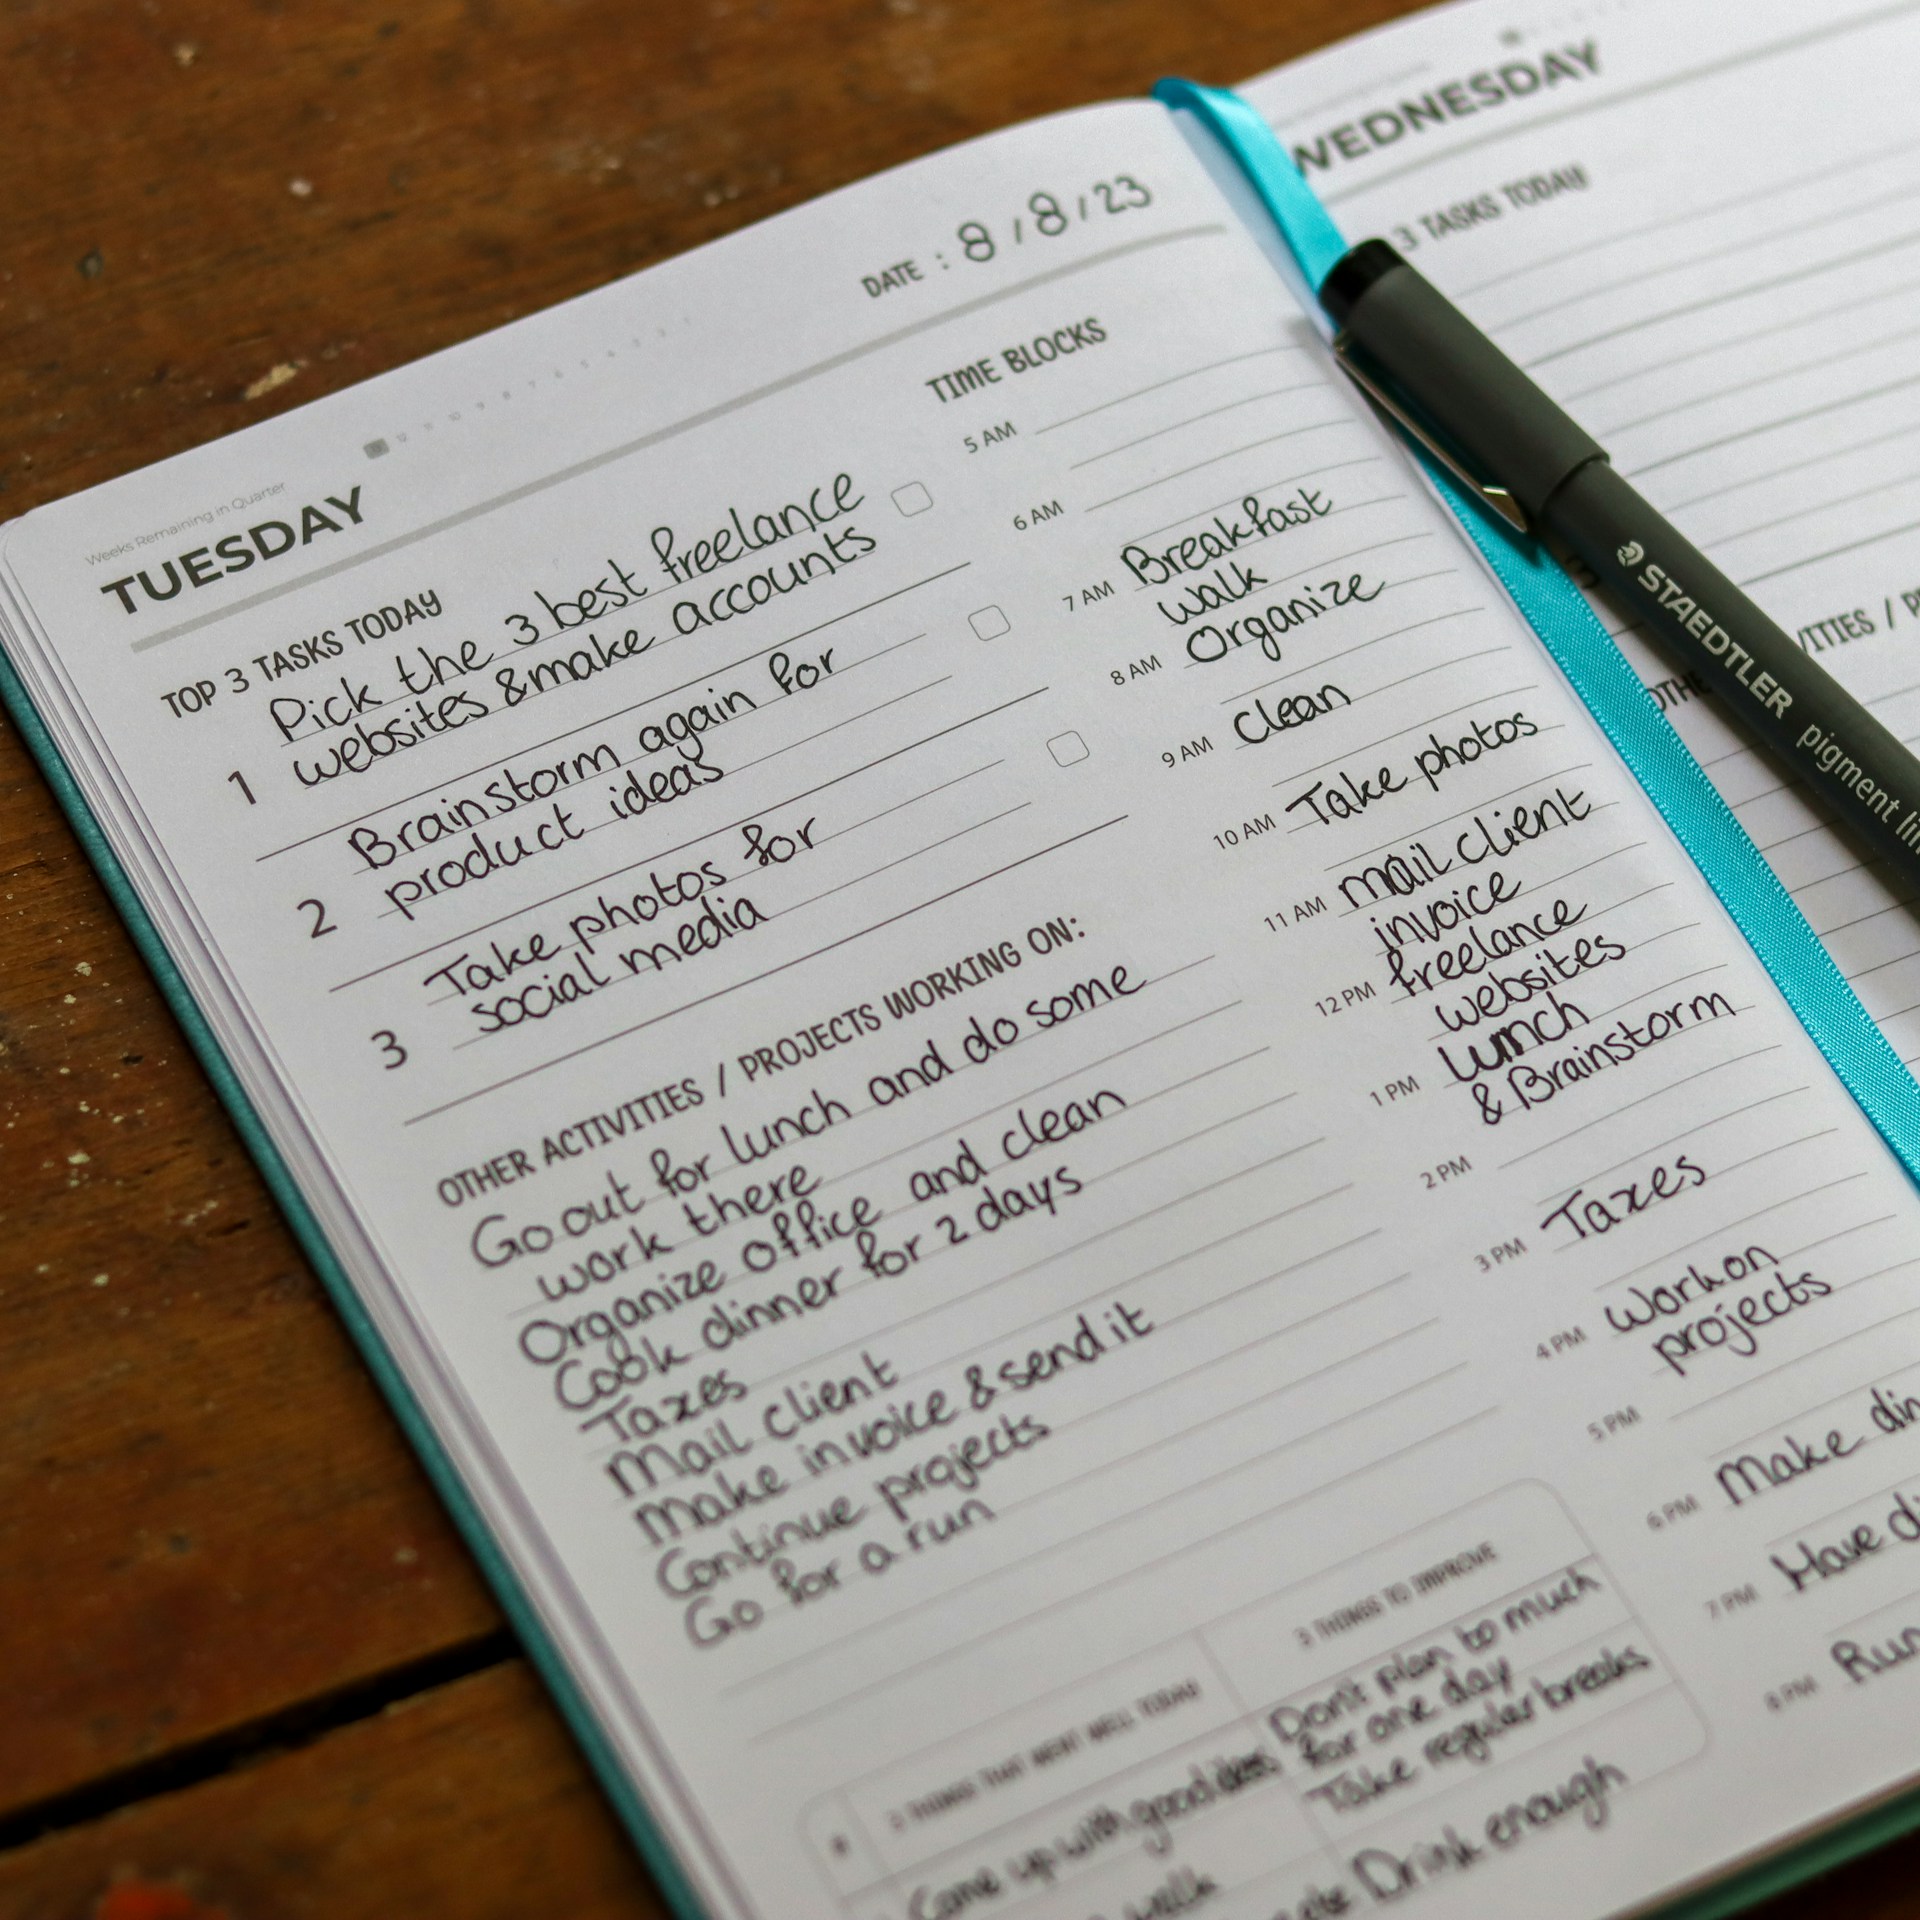 Weeks Remaining in Quarter
TUESDAY
DATE : 8 / 8 / 23
TOP 3 TASKS TODAY
1
Pick the 3 best freelance
websites & make accounts
2
Brainstorm again for
product ideas
3
Take photos for
social media
OTHER ACTIVITIES / PROJECTS WORKING ON:
Go out for lunch and do some
work there
Organize office and clean
Cook dinner for 2 days
Taxes
Mail client
Make invoice & send it
Continue projects
Go for a run
TIME BLOCKS
5 AM
6 AM
7 AM Breakfast
walk
8 AM Organize
9 AM Clean
10 AM Take photos
11 AM mail client
invoice
12 PM freelance
websites
1 PM Lunch
& Brainstorm
2 PM
3 PM Taxes
4 PM Work on
projects
5 PM
6 PM Make din
7 PM Have di
8 PM Run
3 THINGS THAT WENT WELL TODAY
Come up with good ideas
walk
3 THINGS TO IMPROVE
Don't plan to much
for one day
Take regular breaks
Drink enough
WEDNESDAY
3 TASKS TODAY
OTHE
VITIES / P
STAEDTLER pigment lin